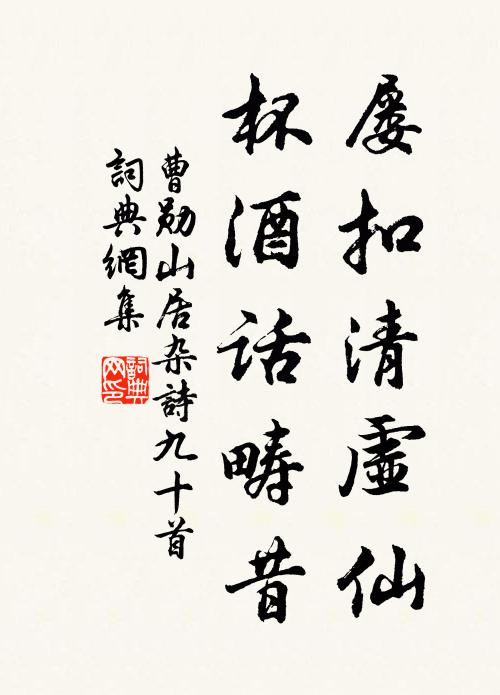 屡扣清虚仙
杯酒话畴昔
曹勋山居杂詩九十首
詞典網集
詞典网印